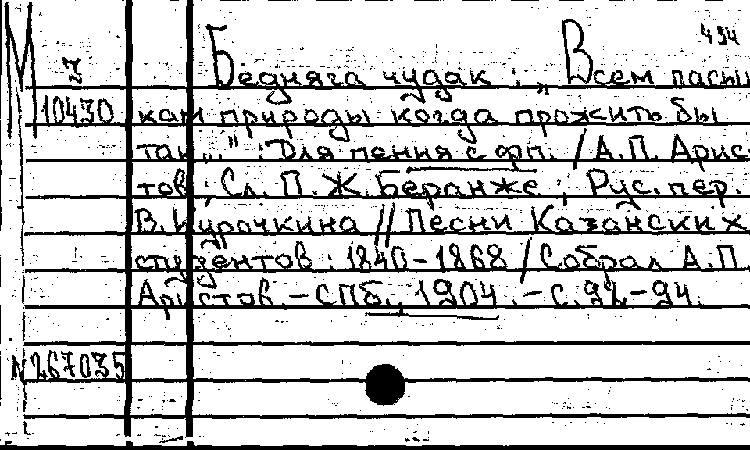 494
М
3
10430
Бедняга чудак : „Всем пасын
кам природы когда прожить бы
так..." : Для пения с фп. / А.П. Арис-
тов ; Сл. П. Ж. Беранже ; Рус. пер.
В. Курочкина // Песни Казанских
студентов : 1840-1868 / Собрал А.П.
Аристов. – СПб., 1904. – С. 92-94.
N267035